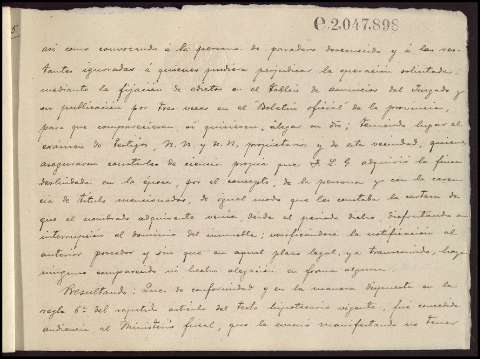 C.2.047.898
así como convocando á la persona de paradero desconocido y á las res-
tantes ignoradas á quienes pudiera perjudicar la operación solicitada,
mediante la fijación de edictos en el tablón de anuncios del Juzgado y
su publicación por tres veces en el Boletín oficial de la provincia,
para que comparecieran, si quisieren, á alegar su dro; teniendo lugar el
examen de testigos, N. N. y N. N., propietarios y de esta vecindad, quienes
aseguraron constarles de ciencia propia que L. G. adquirió la finca
deslindada en la época, por el concepto, de la persona y con la caren-
cia de título mencionados, de igual modo que les constaba la certeza de
que el nombrado adquirente venía, desde el período dicho, disfrutando sin
interrupción el dominio del inmueble; verificándose la notificación al
anterior poseedor y sin que en aquel plazo legal, ya transcurrido, haya
ninguno comparecido ni hecho alegación en forma alguna.
Resultando: Que de conformidad y en la manera dispuesta en la
regla 6ª del repetido artículo del texto hipotecario vigente, fué concedida
audiencia al Ministerio fiscal, que la evacuó manifestando no tener